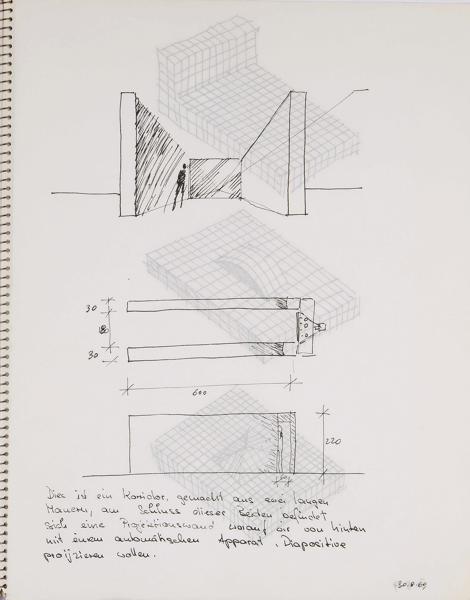 30
80
30
600
220
Dies ist ein Korridor, gemacht aus zwei langen
Mauern, am Schluss dieser Beiden befindet
sich eine Projektionswand worauf wir von hinten
mit einem automatischen Apparat, Diapositive
projizieren wollen.
30.8.69